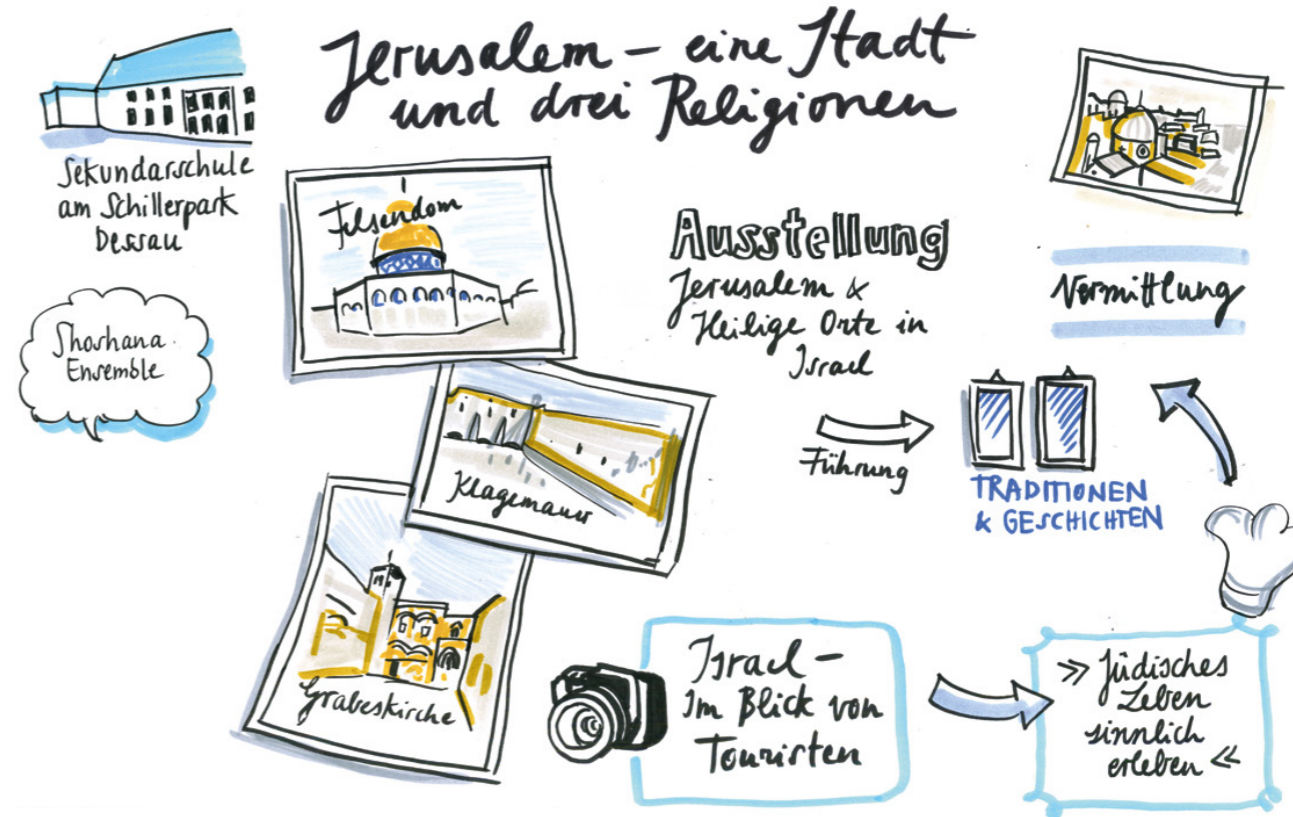 Jerusalem – eine Stadt
und drei Religionen
Sekundarschule
am Schillerpark
Dessau
Shoshana
Ensemble
Felsendom
Klagemauer
Grabeskirche
Ausstellung
Jerusalem &
Heilige Orte in
Israel
Führung
TRADITIONEN
& GESCHICHTEN
Vermittlung
Israel –
Im Blick von
Touristen
» Jüdisches
Leben
sinnlich
erleben «